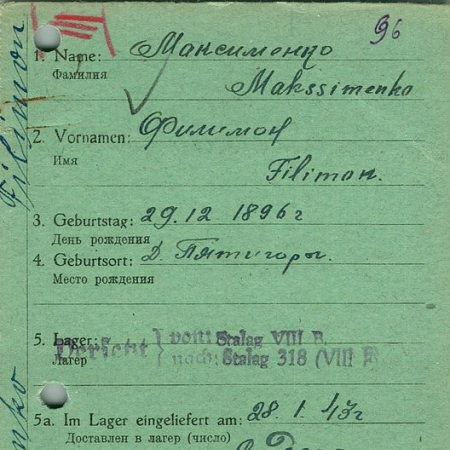 96
1. Name: Максименко
Фамилия
Makssimenko
2. Vornamen: Филимон
Имя
Filimon.
3. Geburtstag: 29.12 1896 г
День рождения
4. Geburtsort: д. Пятигоры.
Место рождения
5. Lager: vom: Stalag VIII B.
Лагер nach: Stalag 318 (VIII
5a. Im Lager eingeliefert am: 28.1.43 г
Доставлен в лагер (число)
Filimon